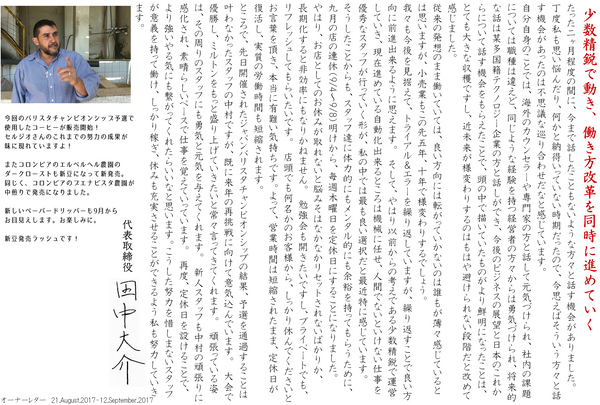 少数精鋭で動き、働き方改革を同時に進めていく
たった二ヶ月程度の間に、今まで話したこともないような方々と話す機会がありました。
丁度私も思い悩んだり、何かと納得いってない時期だったので、今思えばそういう方々と話
す機会があったのは不思議な巡り合わせだなと感じています。
自分自身のことでは、海外のカウンセラーや専門家の方と話して元気づけられ、社内の課題
については職種は違えど、同じような経験を持つ経営者の方々からは勇気づけられ、将来的
な話は某多国籍テクノロジー企業の方と話しができ、今後のビジネスの展望と日本のこれか
らについて話す機会をもらえたことで、頭の中で描いていたものがより鮮明になったことは、
とても大きな収穫ですし、近未来が様変わりするのはもはや避けられない段階だと改めて
感じました。
従来の発想のまま働いていては、良い方向には転がっていかないのは誰もが薄々感じていると
は思いますが、小売業もこの先五年、十年で様変わりするでしょう。
我々も今後を見据えて、トライアル&エラーを繰り返していますが、繰り返すことで良い方
向に前進出来るように思えます。そして、やはり以前からの考えである少数精鋭で運営
していき、現在進めている自動化出来るところは機械に任せ、人間でないといけない仕事を
優秀なスタッフが行っていく形が、私の中では最も良い選択だと最近特に感じています。
そうしたことからも、スタッフ達に体力的にもメンタル的にも余裕を持ってもらうために、
九月の店の連休(9/4〜9/8)明けから、毎週木曜日を定休日にすることになりました。
やはり、お店としてのお休みが取れないと悩みをはなかなかリセットされないばかりか、
長期化すると非効率にもなりかねません。勉強会も開きたいですし、プライベートでも、
リフレッシュしてもらいたいです。店頭でも何名かのお客様から、しっかり休んでくださいと
お言葉を頂き、本当に有難い気持ちです。よって、営業時間は短縮されたまま、定休日が
復活し、実質の労働時間も短縮されます。
ところで、先日開催されたジャパンバリスタチャンピオンシップの結果、予選を通過することは
叶わなかったスタッフの中村ですが、既に来年の再挑戦に向けて意気込んでいます。大会で
優勝し、ミルトンをもっと盛り上げていきたいと常々言ってきてくれます。頑張っている姿
は、その周りのスタッフにも勇気と元気を与えてくれます。新人スタッフも中村の頑張りに
感化され、素晴らしいペースで仕事を覚えていっています。再度、定休日を設けることで、
より強いやる気にも繋がってくれたらいいなと思います。こうした努力を惜しまないスタッフ
が意義を持って働け、しっかり稼ぎ、休みも充実させることができるよう私も努力していき
ます。
代表取締役 田中大介
今回のバリスタチャンピオンシップ予選で
使用したコーヒーが販売開始!
セルジオさんのこれまでの努力の成果が
味に現れていますよ!
またコロンビアのエルベルベル農園の
ダークローストも新豆になって新発売。
同じく、コロンビアのブエナビスタ農園が
中煎りで発売になりました。
新しいペーパードリッパーも9月から
お目見えします。お楽しみに。
新豆発売ラッシュです!
オーナーレター 21,August,2017-12,September,2017